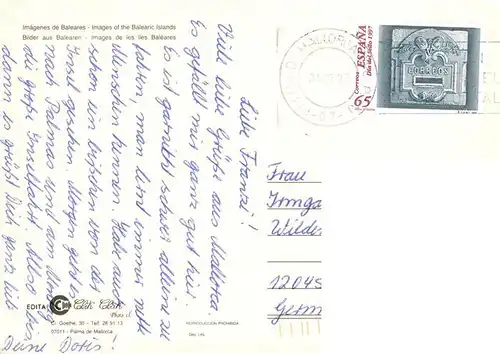 Imágenes de Baleares - Images of the Balearic Islands
Bilder aus Balearen - Images de les Iles Baléares
Liebe Franzi!
Viele liebe Grüße aus Mallorca
Es gefällt mir ganz gut hier.
Es ist garnicht schwer alleine zu
fahren, man lernt immer nette
Menschen kennen. Habe auch
schon ein bißchen von der
Insel gesehen. Morgen geht es
nach Palma und am Montag
die große Inselfahrt. Also bis
dann es grüßt Dich ganz lieb
Deine Doris!
EDITA
Click Click
C/. Goethe, 30 - Telf. 28 51 13
07011 - Palma de Mallorca
REPRODUCCION PROHIBIDA
Correos ESPAÑA
Día del Sello 1997
65
CORREOS
MALLORCA
Frau
Irmga
Wilden
12045
Germ